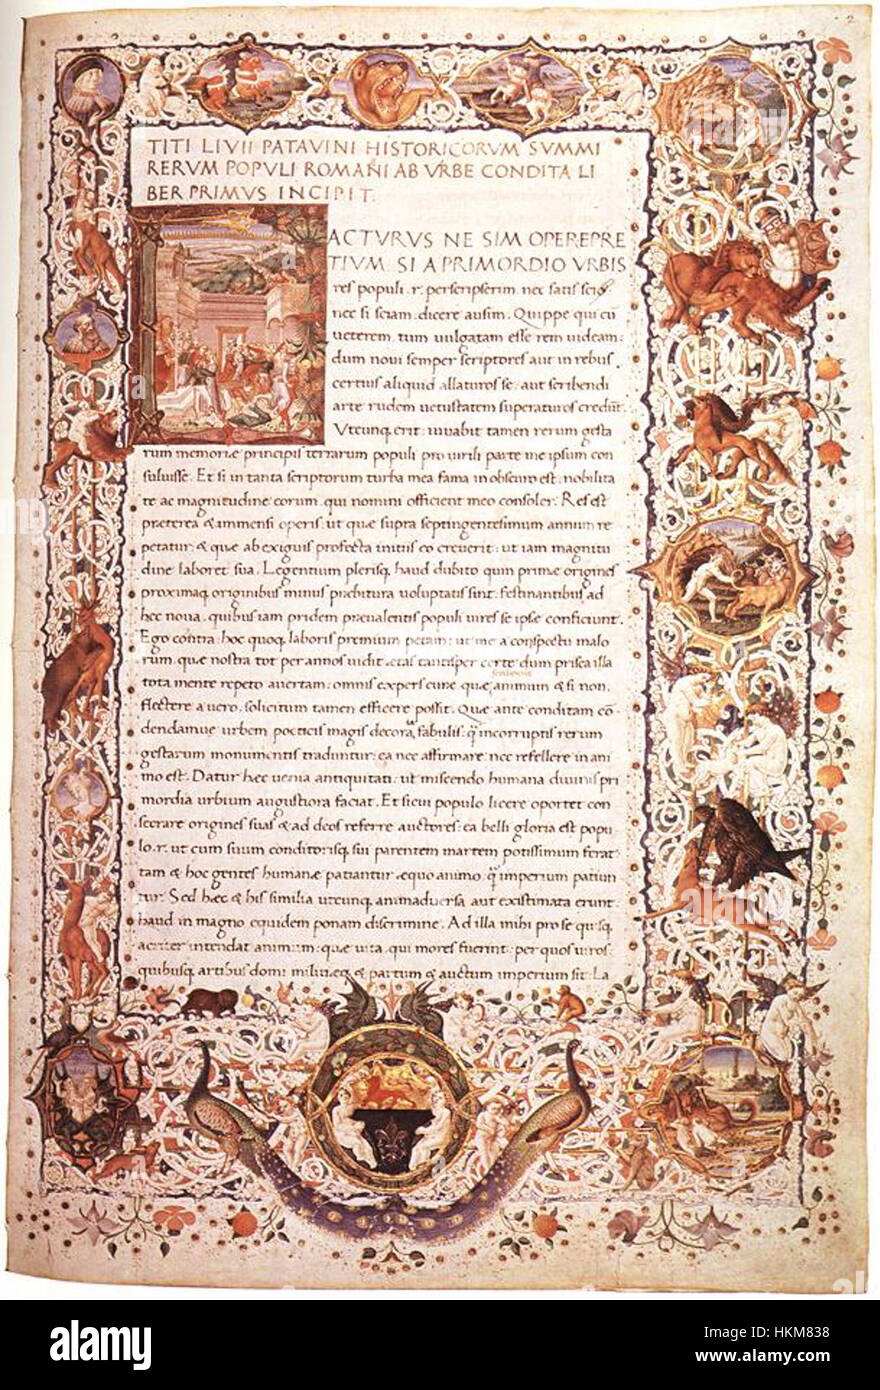 TITI LIVII PATAVINI HISTORICORVM SVMMI
RERVM POPVLI ROMANI AB VRBE CONDITA LI
BER PRIMVS INCIPIT:
FACTVRVS NE SIM OPEREPRE
TIVM: SI A PRIMORDIO VRBIS
res populi .r. perscripserim nec satis scio
nec si sciam: dicere ausim. Quippe qui cū
ueterem. tum uulgatam esse rem uideam:
dum noui semper scriptores aut in rebus
certius aliquid allaturos se: aut scribendi
arte rudem uetustatem superaturos credūt.
Vtcunq erit: iuuabit tamen rerum gesta
rum memoriæ principis terrarum populi pro uirili parte me ipsum con
suluisse. Et si in tanta scriptorum turba mea fama in obscuro est: nobilita
te ac magnitudine eorum. qui nomini officient meo consoler. Res est
præterea & immensi operis: ut quæ supra septingentesimum annum re
petatur: & quæ ab exiguis profecta initiis eo creuerit: ut iam magnitu
dine laboret sua. Legentium plerisq haud dubito quin primæ origines
proximaq originibus minus præbitura uoluptatis sint: festinantibus ad
hæc noua. quibus iam pridem præualentis populi uires se ipsæ conficiunt.
Ego contra: hoc quoq laboris premium petam: ut me a conspectu malo
rum. quæ nostra tot per annos uidit ætas tantisper certe dum prisca illa
tota mente repeto auertam: omnis expers curæ quæ animum & si non
flectere a uero. solicitum tamen efficere possit. Quæ ante conditam cō
dendamue urbem poeticis magis decora fabulis: q̄ incorruptis rerum
gestarum monumentis traduntur: ea nec affirmare: nec refellere in ani
mo est. Datur hæc uenia antiquitati: ut miscendo humana diuinis pri
mordia urbium augustiora faciat. Et si cui populo licere oportet con
secrare origines suas & ad deos referre auctores: ea belli gloria est popu
lo .r. ut cum suum conditorisq sui parentem martem potissimum ferat:
tam & hoc gentes humanæ patiantur æquo animo q̄ imperium patiun
tur. Sed hæc & his similia utcunq animaduersa aut existimata erunt:
haud in magno equidem ponam discrimine. Ad illa mihi pro se quisq
acriter intendat animum: quæ uita. qui mores fuerint: per quos uiros.
quibusq artibus domi militiæq & partum & auctum imperium sit. La
alamy
Image ID: HKM838
www.alamy.com